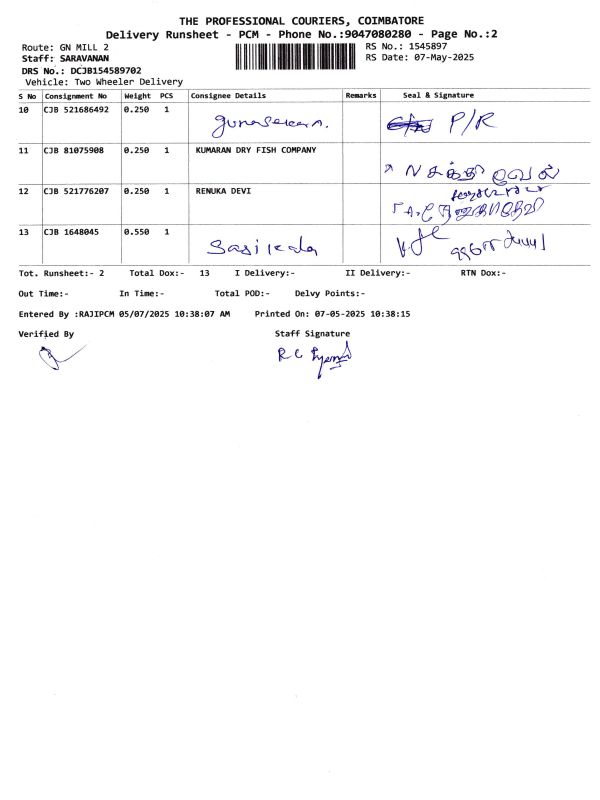 THE PROFESSIONAL COURIERS, COIMBATORE
Delivery Runsheet - PCM - Phone No.:9047080280 - Page No.:2
Route: GN MILL 2
RS No.: 1545897
Staff: SARAVANAN
RS Date: 07-May-2025
DRS No.: DCJB154589702
Vehicle: Two Wheeler Delivery
S No Consignment No Weight PCS Consignee Details Remarks Seal & Signature
10 CJB 521686492 0.250 1 gunasekaran. P/R
11 CJB 81075908 0.250 1 KUMARAN DRY FISH COMPANY
N சக்தி வேல்
12 CJB 521776207 0.250 1 RENUKA DEVI
13 CJB 1648045 0.550 1 Sasikala
Tot. Runsheet:- 2 Total Dox:- 13 I Delivery:- II Delivery:- RTN Dox:-
Out Time:- In Time:- Total POD:- Delvy Points:-
Entered By :RAJIPCM 05/07/2025 10:38:07 AM Printed On: 07-05-2025 10:38:15
Verified By Staff Signature